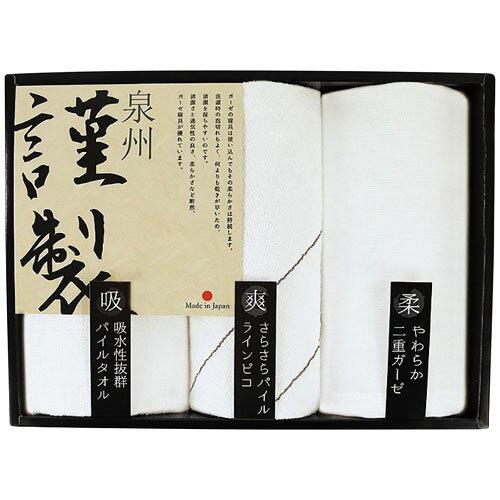 泉州
謹製
ガーゼの寝具は使い込んでもその柔らかさは持続します。
洗濯時の泡切れもよく、何よりも乾きが早いため、
清潔を保ちやすいのです。
清潔さと通気性の良さ、柔らかさなど断然、
ガーゼ寝具が優れています。
Made in Japan
柔
やわらか
二重ガーゼ
爽
さらさらパイル
ラインピコ
吸
吸水性抜群
パイルタオル